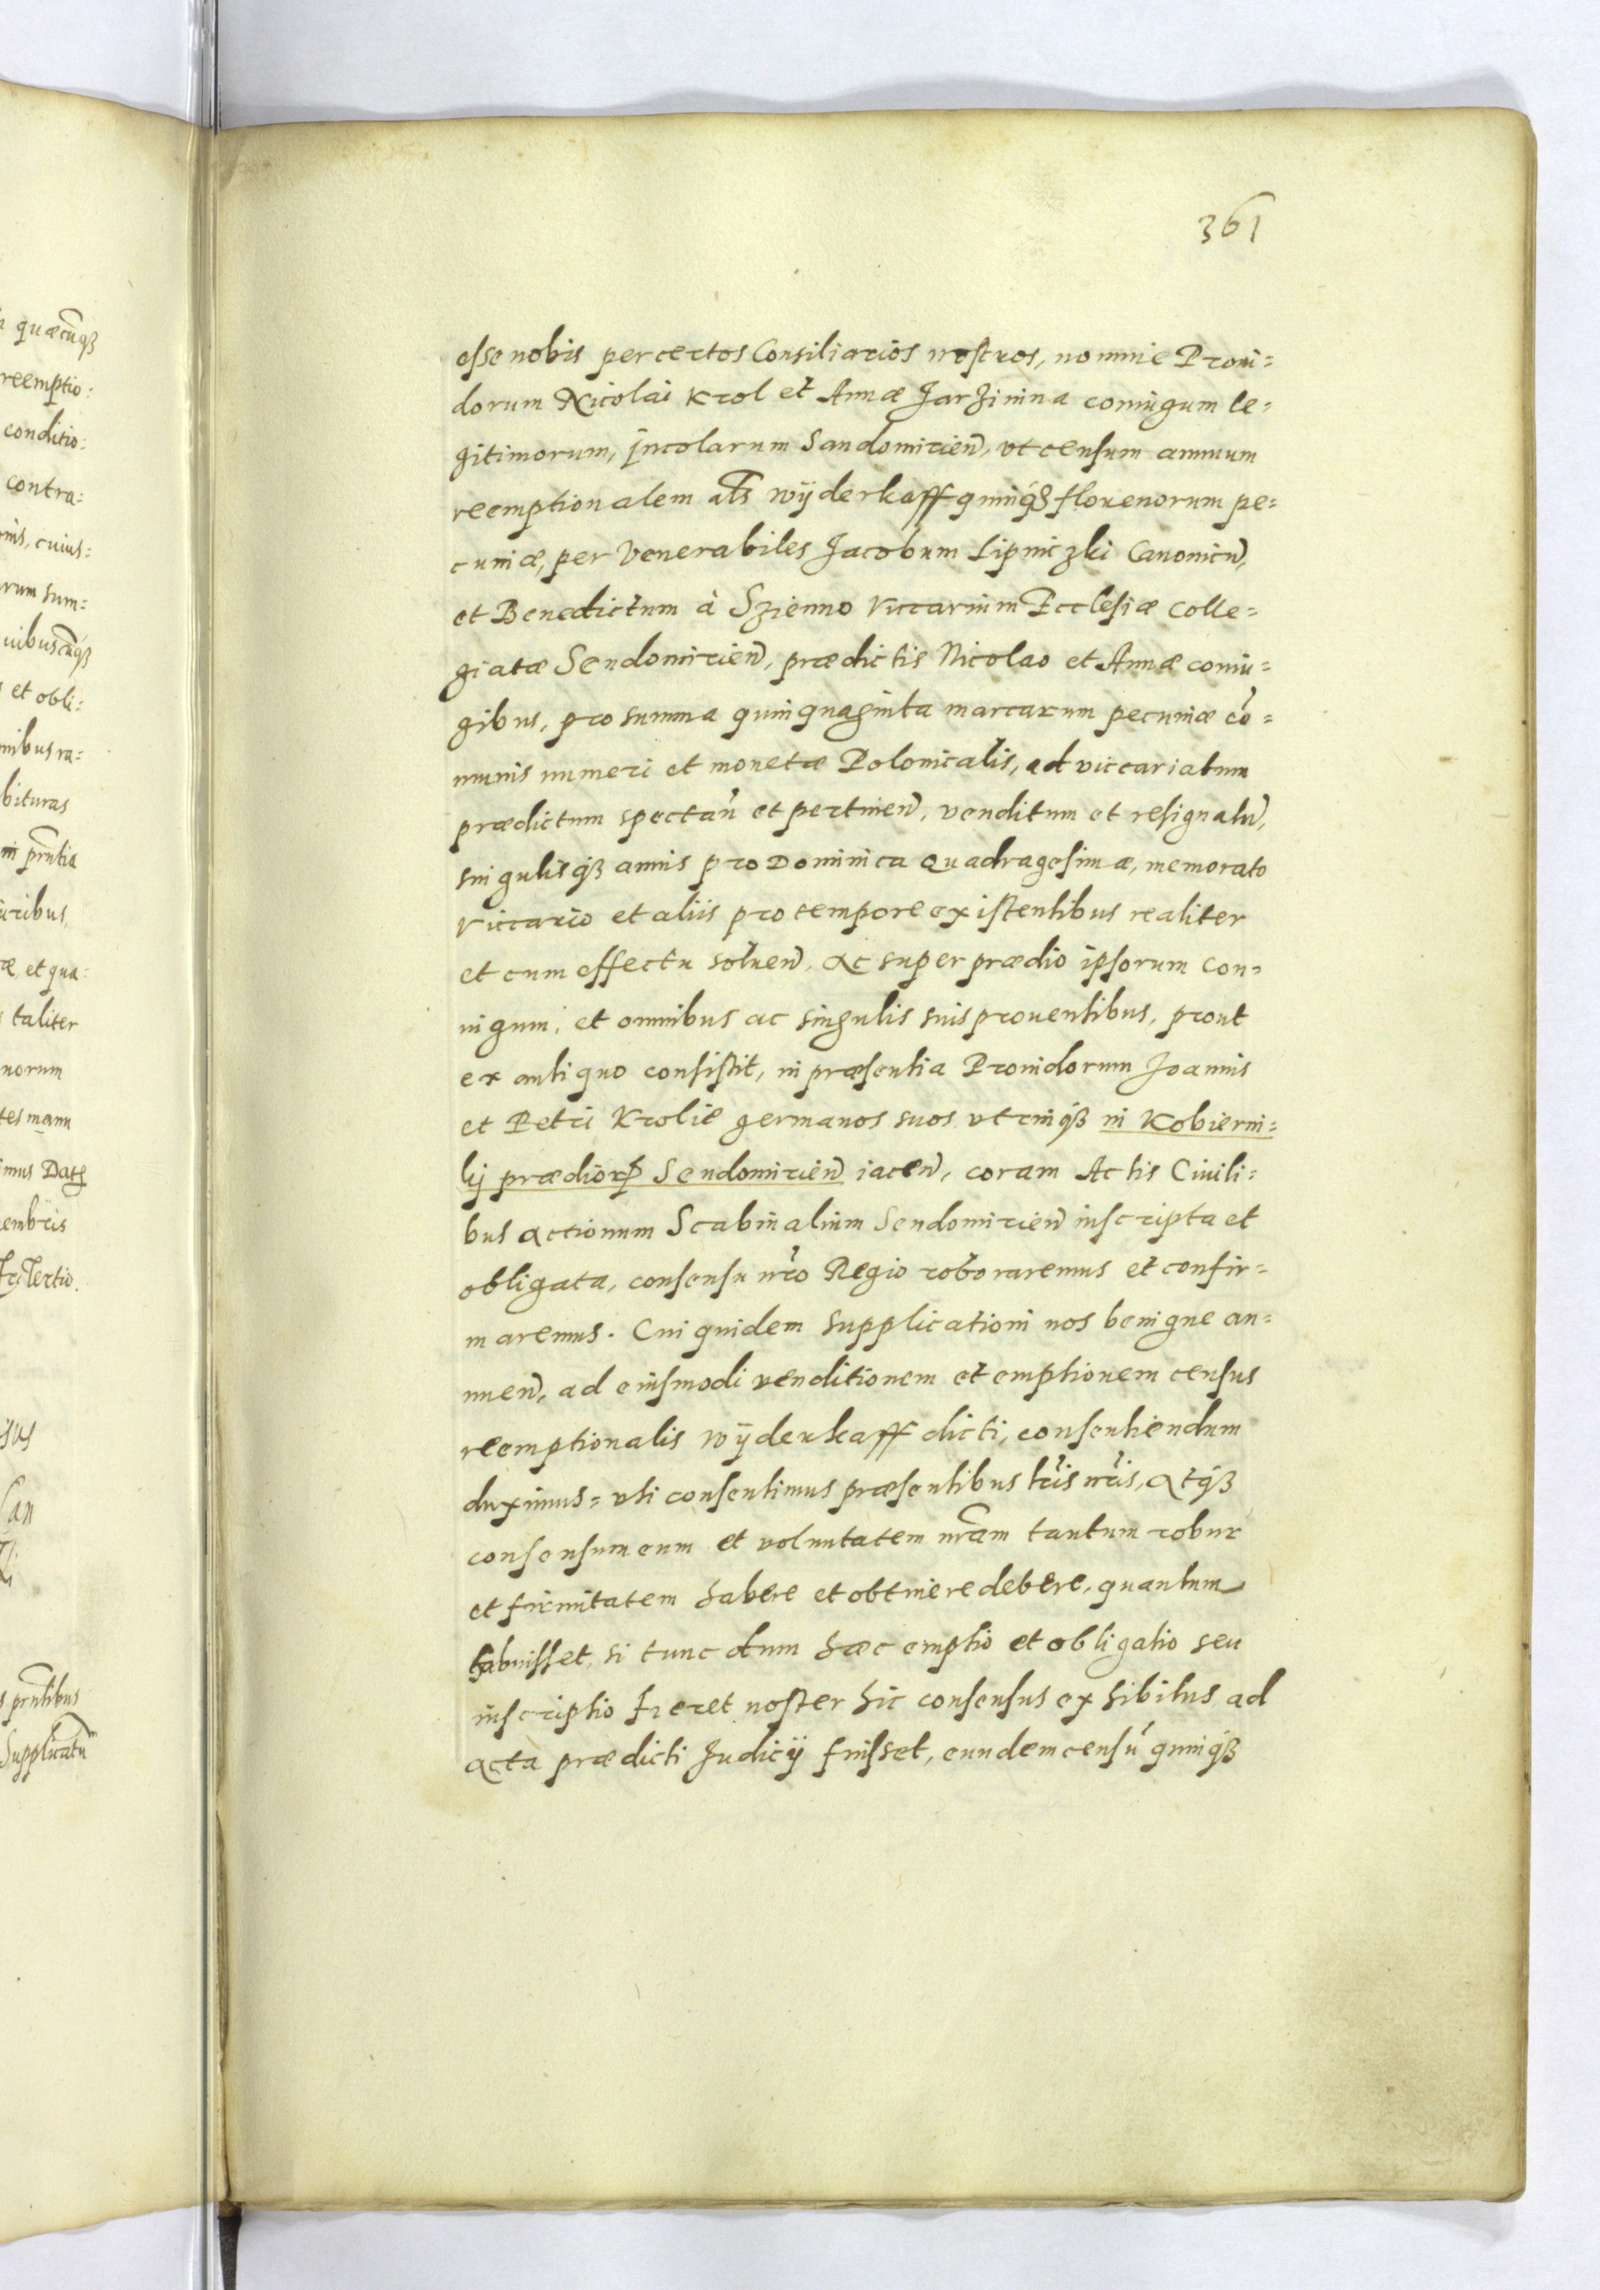 361
esse nobis per certos Consiliarios nostros, nomine Proui=
dorum Nicolai Krol et Annæ Jarzinina coniugum le=
gitimorum, incolarum Sandomirien̄, vt censum annuum
reemptionalem al̄s wÿderkaff quinqȝ florenorum pe=
cuniæ, per Venerabiles Jacobum Lipniczki Canonicū,
et Benedictum à Szienno Viccarium Ecclesiæ Colle=
giatæ Sendomirien̄, prædictis Nicolao et Annæ coniu=
gibus, pro summa quinquaginta marcarum pecuniæ cō=
munis numeri et monetæ Polonicalis, ad viccariatum
prædictum spectan̄ et pertinen̄, venditum et resignatū,
singulisqȝ annis pro Dominica Quadragesimæ, memorato
Viccario et aliis pro tempore existentibus realiter
et cum effectu soluen̄, ac super prædio ipsorum con=
iugum, et omnibus ac singulis suis prouentibus, prout
ex antiquo consistit, in præsentia Prouidorum Joannis
et Petri Krolie germanos suos vtrinqȝ in Kobierni=
kij prædiorꝝ Sendomirien̄ iacen̄, coram Actis Ciuili=
bus actionum Scabinalium Sendomirien̄ inscripta et
obligata, consensu nr̄o Regio roboraremus et confir=
maremus. Cui quidem supplicationi nos benigne an=
nuen̄, ad eiusmodi venditionem et emptionem census
reemptionalis wÿderkaff dicti, consentiendum
duximus= vti consentimus præsentibus lr̄is nr̄is, atqȝ
consensum eum et voluntatem nr̄am tantum robur
et firmitatem habere et obtinere debere, quantum
habuisset, si tunc dum hæc emptio et obligatio seu
inscriptio fieret noster hic consensus exhibitus ad
acta prædicti Judicÿ fuisset, eundem censū quinqȝ